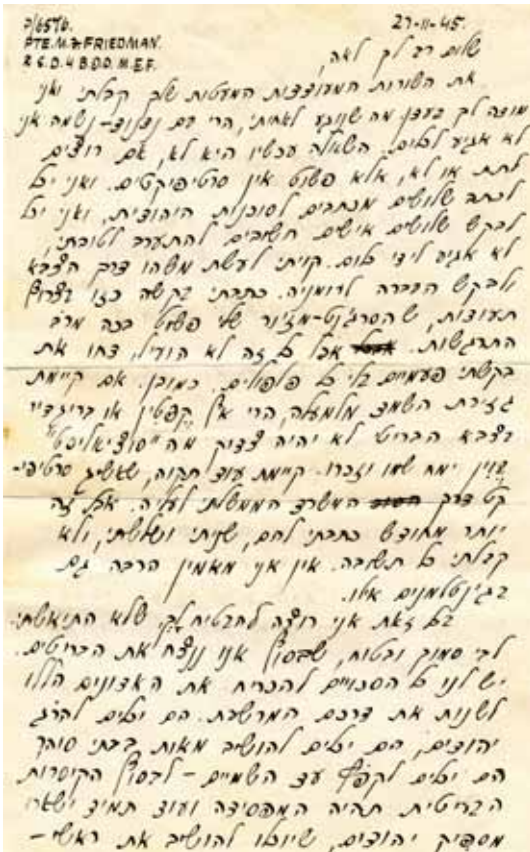 27-11-45.
P/6576.
PTE.M.Z FRIEDMAN.
2 S.D. 4 B.O.D. M.E.F.
שלום רב לך לאה,
את השורות המעודדות המעטות שלך קבלתי ואני
מודה לך בעדן. מה שנוגע לאחותי, הרי גם
לא אגיע לכלום. השאלה עכשיו היא לא, אם רוצים
לתת או לא, אלא פשוט אין סרטיפיקטים. ואני יכל
לכתב שלושים מכתבים לסוכנות היהודית, ואני יכל
לבקש שלושים אישים חשובים להתערב לטובתי,
לא אגיע לידי כלום. קויתי לעשת משהו דרך הצבא
ולבקש העברה לרומניה. כתבתי בקשה כזו בצרוף
תעודות, שהסרג'נט-מז'ור שלי פשוט בכה מרב
התרגשות. אבל כל זה לא הועיל, דחו את
בקשתי פעמיים בלי כל פלפולים. כמובן. אם קיימת
גזירת השמד מלמעלה, הרי אין קפטין או בריגדיר
בצבא הבריטי לא יהיה צדוק מה"סוציאליסט"
בוין ימח שמו וזכרו. קיימת עוד תקוה, שאשיג סרטיפי-
קט דרך המשרד הממשלתי לעליה. אבל זה
יותר מחודש כתבתי להם, שניתי ושלשתי, ולא
קבלתי כל תשובה. אין אני מאמין הרבה גם
בג'נטלמנים אילו.
בכל זאת אני רוצה להבטיח לך, שלא התיאשתי.
לבי סמוך ובטוח, שבסוף אנו ננצח את הבריטים.
יש לנו כל הסכויים להכריח את האדונים הללו
לשנות את דרכם המרשעת. הם יכלים להרג
יהודים, הם יכלים להושיב מאות בבתי סוהר
הם יכלים לקפץ עד השמיים - לבסוף הקיסרות
הבריטית תהיה המפסידה ועוד תמיד ישארו
מספיק יהודים, שיוכלו להושיב את ראשי-